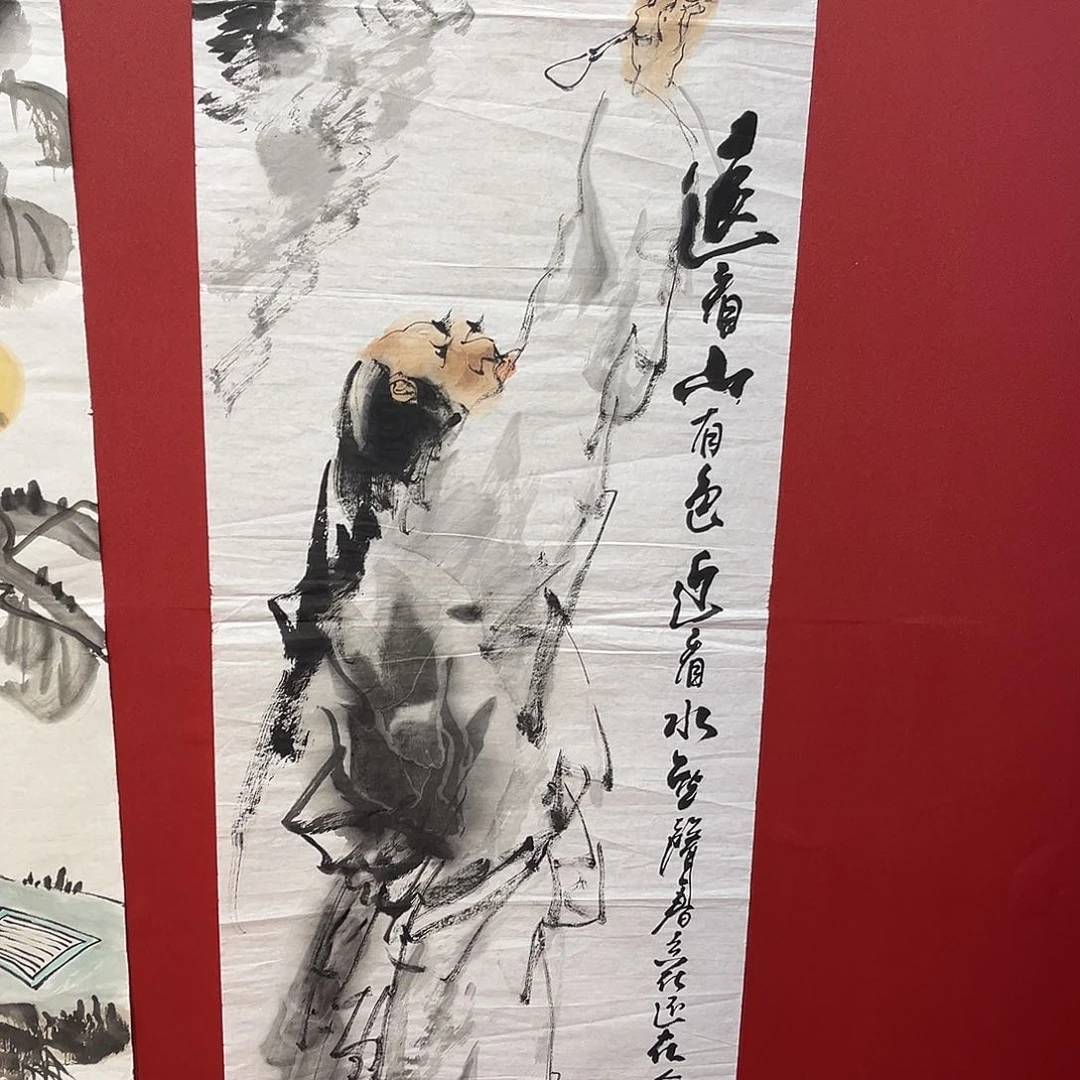 遠看山有色近看水無聲春去花还在人